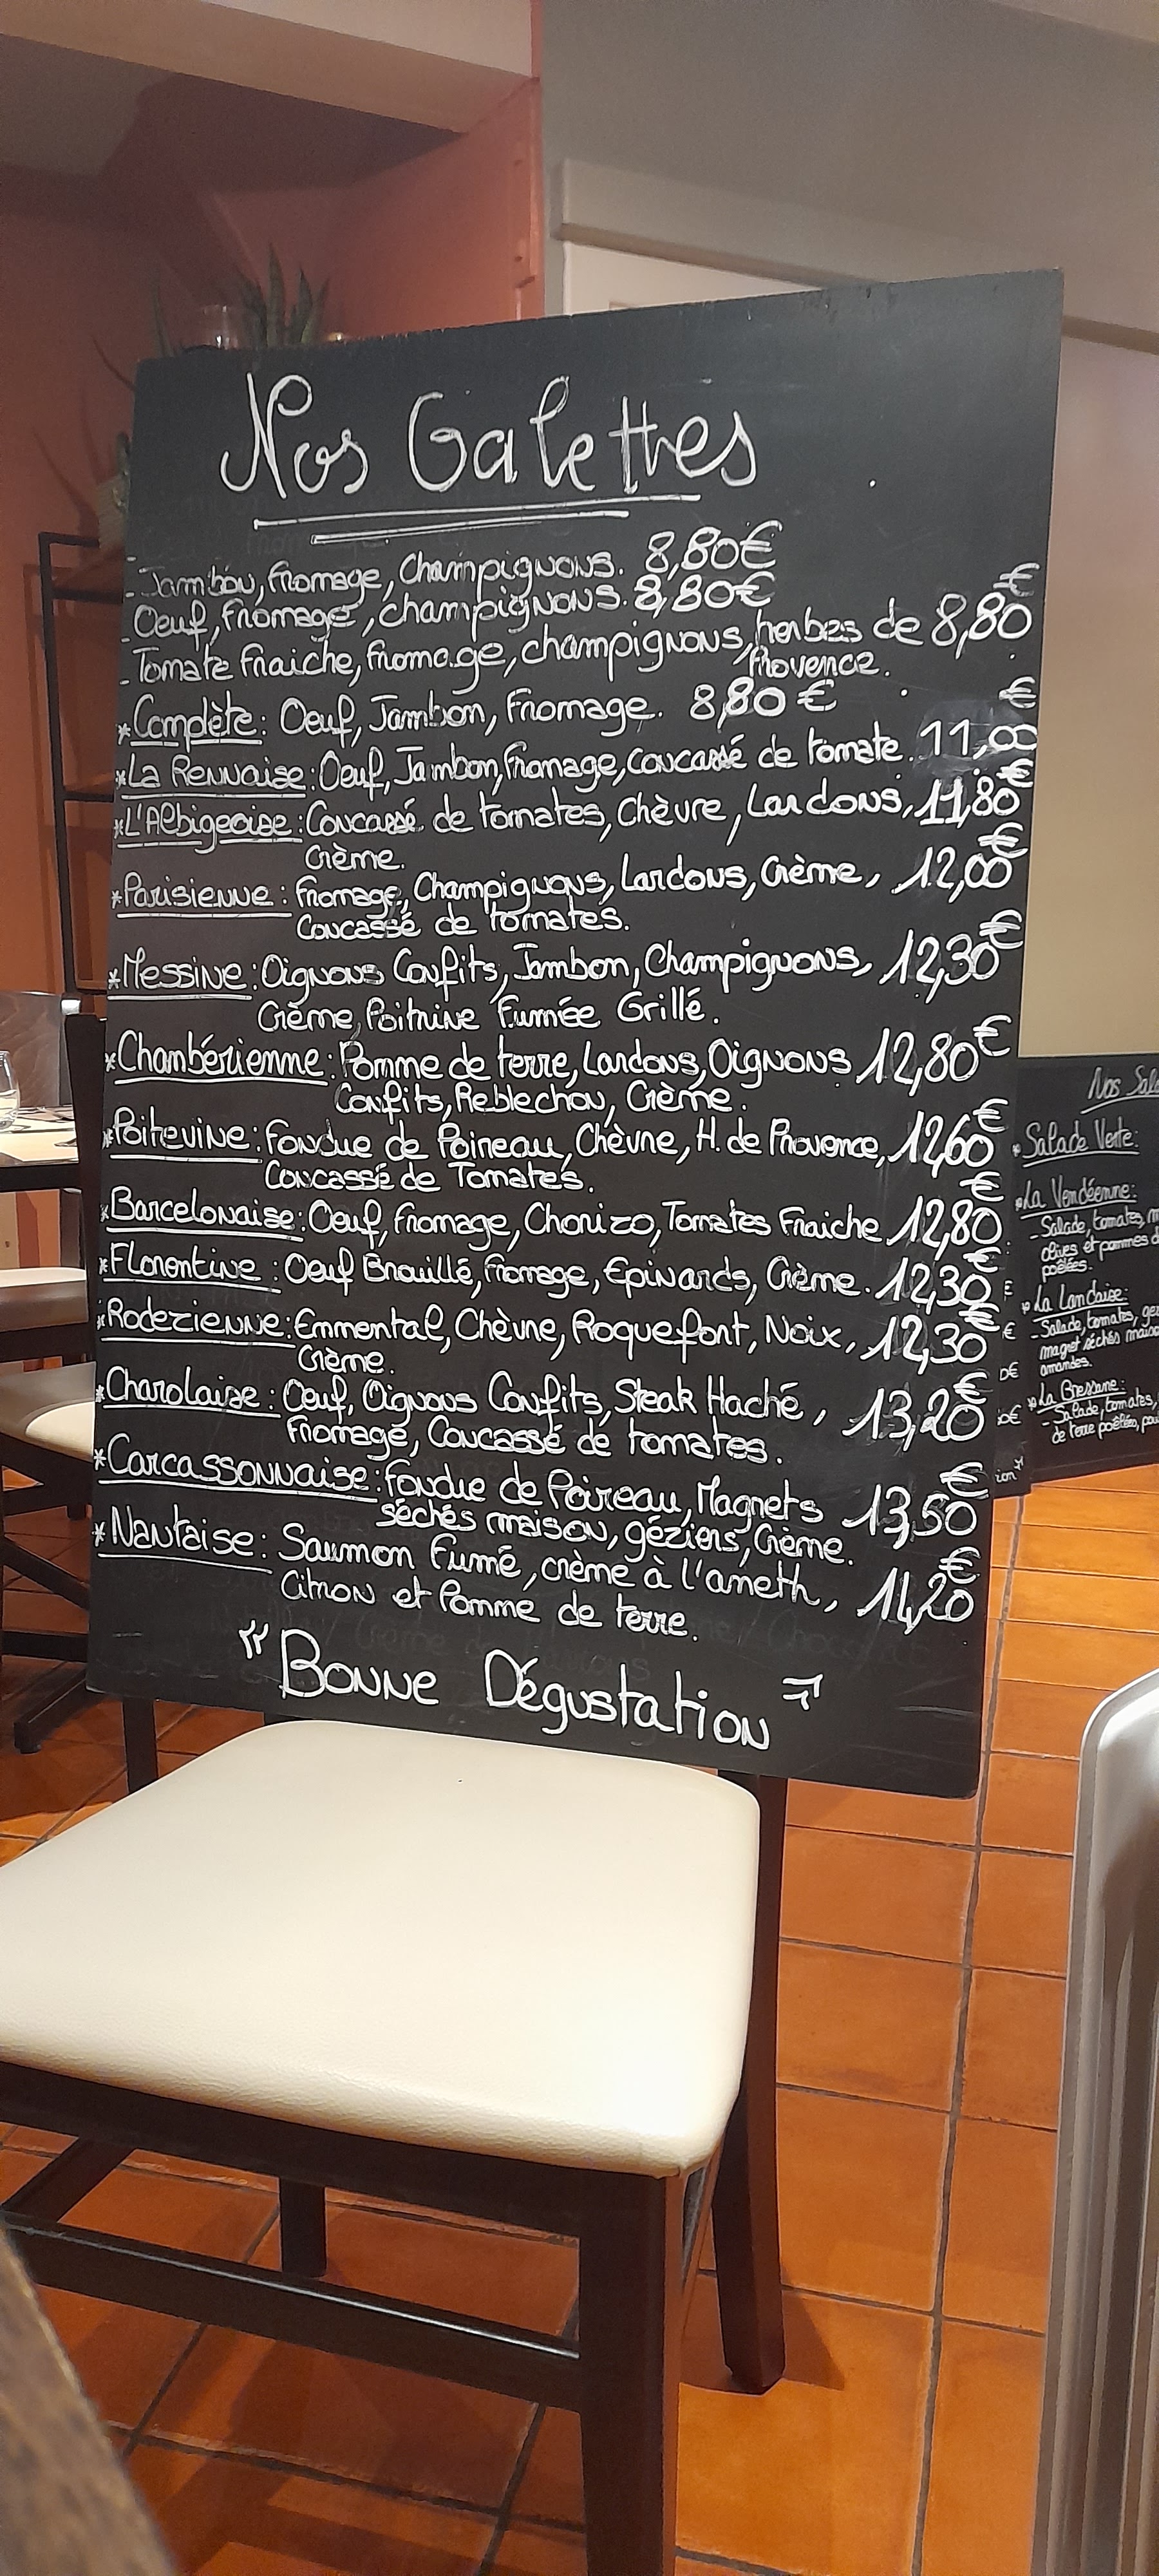 Nos Galettes
- Jambon, fromage, Champignons. 8,80€
- Oeuf, fromage, champignons. 8,80€
- Tomate fraiche, fromage, champignons, herbes de 8,80€
Provence.
*Complète: Oeuf, Jambon, Fromage. 8,80€
*La Rennaise: Oeuf, Jambon, fromage, concassé de tomate. 11,00€
*L'Albigeoise: Concassé de tomates, Chèvre, Lardons, 11,80€
Crème.
*Parisienne: fromage, Champignons, Lardons, Crème, 12,00€
Concassé de tomates.
*Messine: Oignons Confits, Jambon, Champignons, 12,30€
Crème, Poitrine Fumée Grillé.
*Chambérienne: Pomme de terre, Lardons, Oignons 12,80€
Confits, Reblechon, Crème.
*Poitevine: Fondue de Poireau, Chèvre, H. de Provence, 12,60€
Concassé de Tomates.
*Barcelonaise: Oeuf, fromage, Chorizo, Tomates Fraiche 12,80€
*Florentine: Oeuf Brouillé, fromage, Epinards, Crème. 12,30€
*Roderienne: Emmental, Chèvre, Roquefort, Noix, 12,30€
Crème.
*Charolaise: Oeuf, Oignons Confits, Steak Haché, 13,20€
Fromage, Concassé de tomates.
*Carcassonnaise: fondue de Poireau, Magrets 13,50€
séchés maison, géziers, Crème.
*Nantaise: Saumon Fumé, crème à l'aneth, 14,20€
Citron et Pomme de terre.
"Bonne Dégustation"
Nos
*Salade Verte:
*La Vendéenne:
- Salade, tomates,
olives et pommes
poêlées.
*La Landaise:
- Salade, tomates,
magret séchés
amandes.
*La Bressane:
- Salade, tomates,
de terre poêlées,